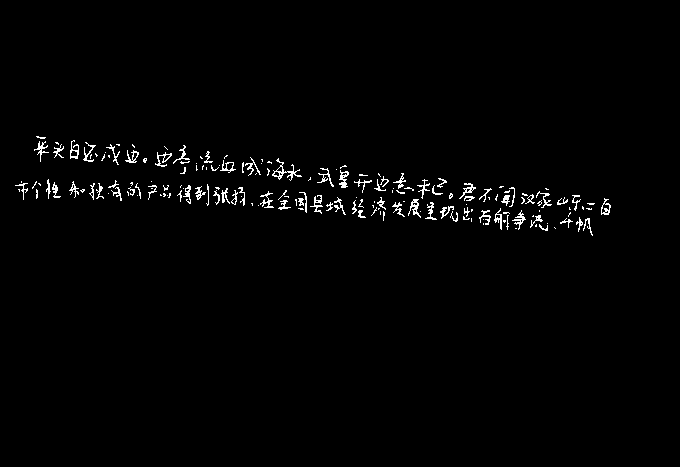 来头白还戍边。边亭流血成海水，武皇开边意未已。君不闻汉家山东二百
市个性和独有的产品得到张扬、在全国县域经济发展呈现出百舸争流、千帆